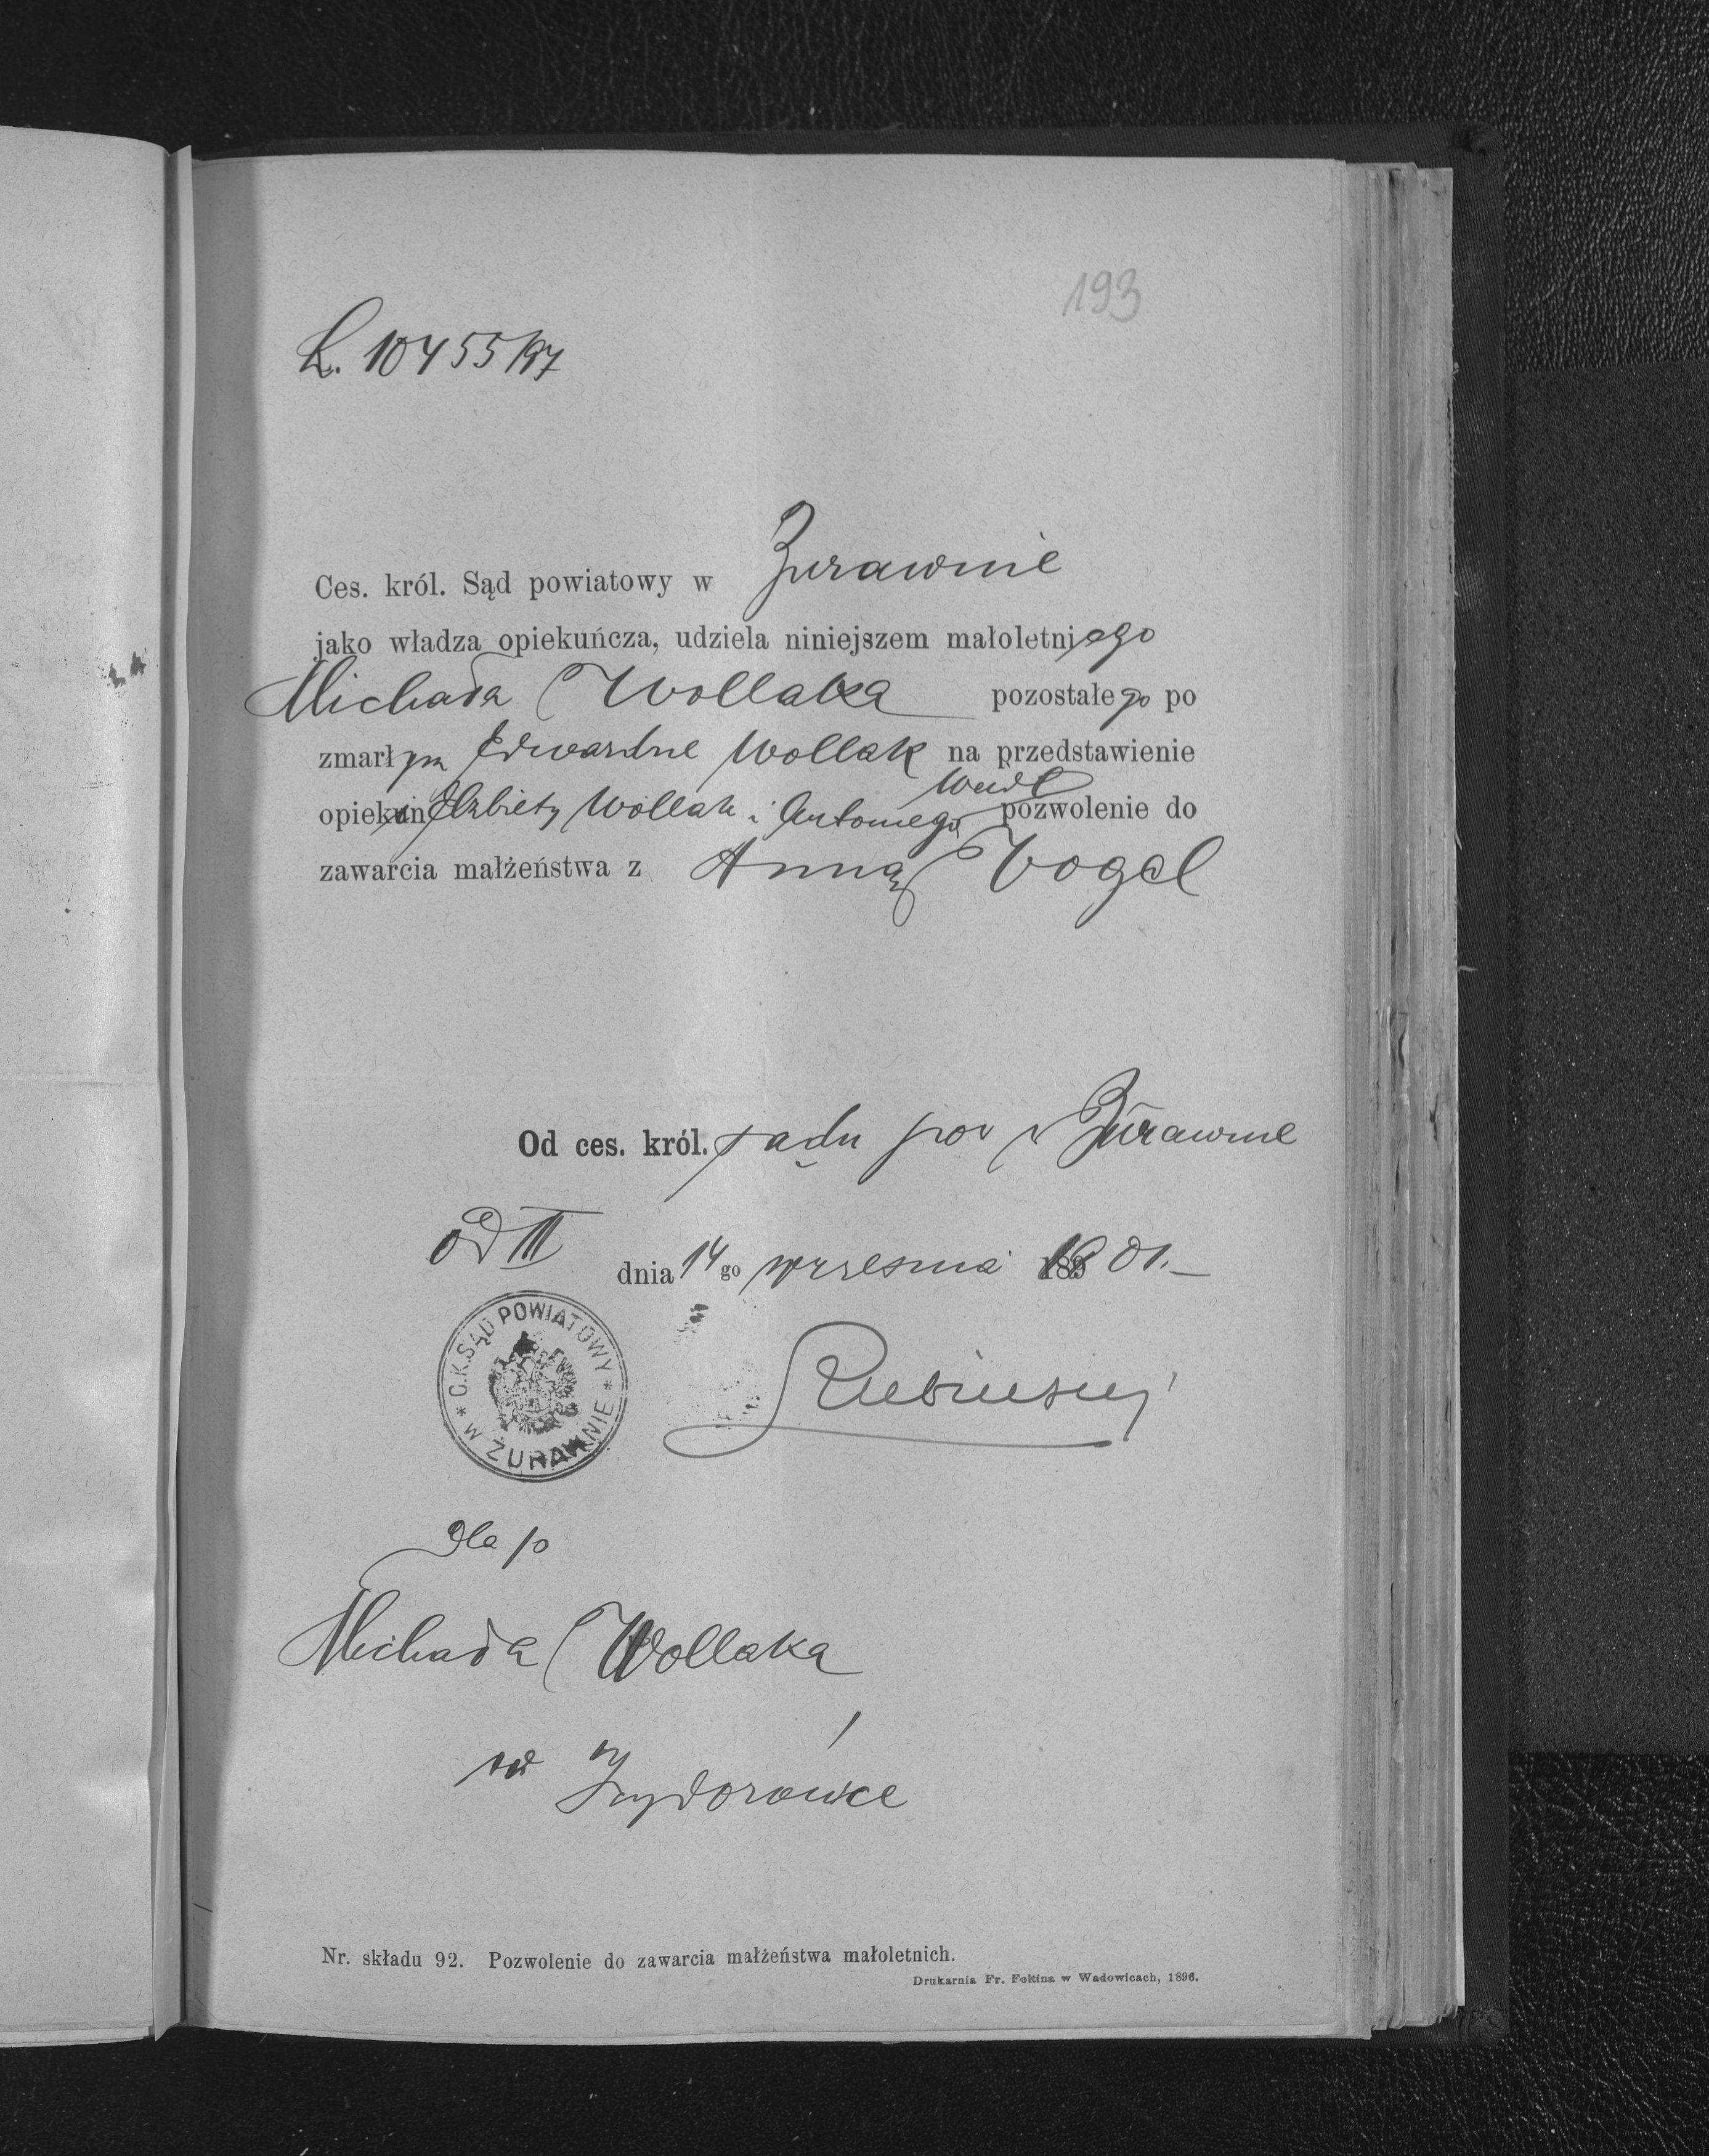 193
L. 10455/97
Ces. król. Sąd powiatowy w Żurawnie
jako władza opiekuńcza, udziela niniejszem małoletniego
Michała Wollaka pozostałego po
zmarłym Edwardzie Wollak na przedstawienie
Weidl
opiekun Elżbiety Wollak i Antoniego pozwolenie do
zawarcia małżeństwa z Anną Vogel
Od ces. król. sądu pow w Żurawnie
od III
dnia 14 go września 1901.—
C.K. SĄD POWIATOWY
W ŻURAWNIE
Dla p
Michała Wollaka
w Izydorówce
Nr. składu 92. Pozwolenie do zawarcia małżeństwa małoletnich.
Drukarnia Fr. Foltina w Wadowicach, 1896.